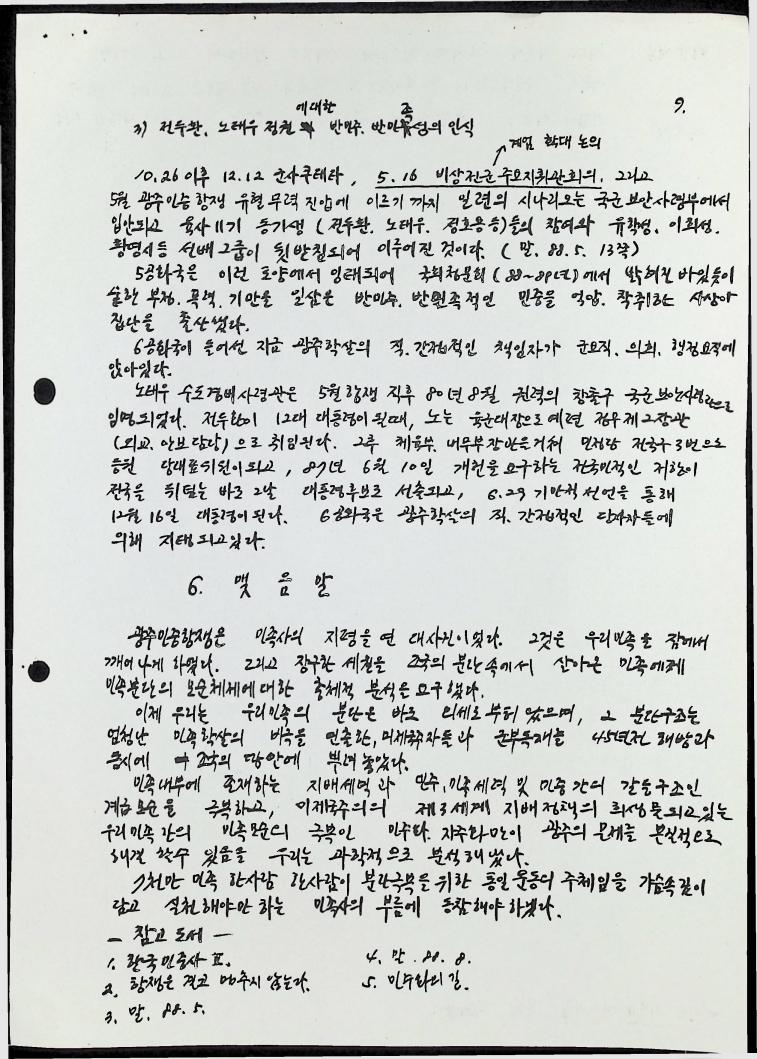 9.
3) 전두환, 노태우 정권에대한 반민주. 반민족성의 인식
계엄 확대 논의
10.26 이후 12.12 군사쿠테타, 5.16 비상전군 주요지휘관회의, 그리고
5월 광주민중항쟁 유혈 무력 진압에 이르기 까지 일련의 시나리오는 국군 보안사령부에서
입안되고 육사 11기 동기생 (전두환. 노태우. 정호용등)들의 참여와 유학성. 이희성.
황영시등 선배그룹이 뒷받침되어 이루어진 것이다. (말. 88. 5. 13쪽)
5공화국은 이런 토양에서 잉태되어 국회청문회 (88~89년)에서 밝혀진 바있듯이
숱한 부정. 폭력. 기만을 일삼은 반민주. 반민족적인 민중을 억압. 착취하는
집단을 출산했다.
6공화국이 들어선 지금 광주학살의 직. 간접적인 책임자가 군요직. 의회. 행정요직에
앉아있다.
노태우 수도경비사령관은 5월항쟁 직후 80년 8월 권력의 창출구 국군보안사령관으로
임명되었다. 전두환이 12대 대통령이 된때, 노는 육군대장으로 예편 정무제2장관
(외교. 안보 담당) 으로 취임된다. 그후 체육부. 내무부장관을거쳐 민정당 전국구 3번으로
등원 당대표위원이되고, 87년 6월 10일 개헌을요구하는 전국민적인 저항이
전국을 뒤덮는 바로 그날 대통령후보로 선출되고, 6.29 기만적 선언을 통해
12월 16일 대통령이 된다. 6공화국은 광주학살의 직. 간접적인 당사자들에
의해 지탱되고있다.
6. 맺음말
광주민중항쟁은 민족사의 지평을 연 대사건이었다. 그것은 우리민족을 잠에서
깨어나게 하였다. 그리고 장구한 세월을 조국의 분단속에서 살아온 민족에게
민족분단의 모순체제에대한 총체적 분석을 요구했다.
이제 우리는 우리민족의 분단은 바로 외세로 부터 왔으며, 그 분단구조는
엄청난 민족학살의 비극을 연출한, 미제국주자들과 군부독재를 45년전 해방과
동시에 조국의 땅안에 뿌려놓았다.
민족내부에 존재하는 지배세력과 민주, 민족세력 및 민중 간의 갈등구조인
계급모순을 극복하고, 미제국주의의 제3세계 지배정책의 희생물되고있는
우리민족간의 민족모순의 극복인 민주화. 자주화만이 광주의 문제를 본질적으로
해결 할수 있음을 우리는 과학적으로 분석해냈다.
7천만 민족 한사람 한사람이 분단극복을위한 통일운동의 주체임을 가슴속깊이
담고 실천해야만 하는 민족사의 부름에 동참해야 하겠다.
- 참고도서 -
1. 한국민중사 Ⅱ.
2. 항쟁은 결코 멈추지 않는다.
3. 말. 88. 5.
4. 말. 88. 8.
5. 민주화의길.